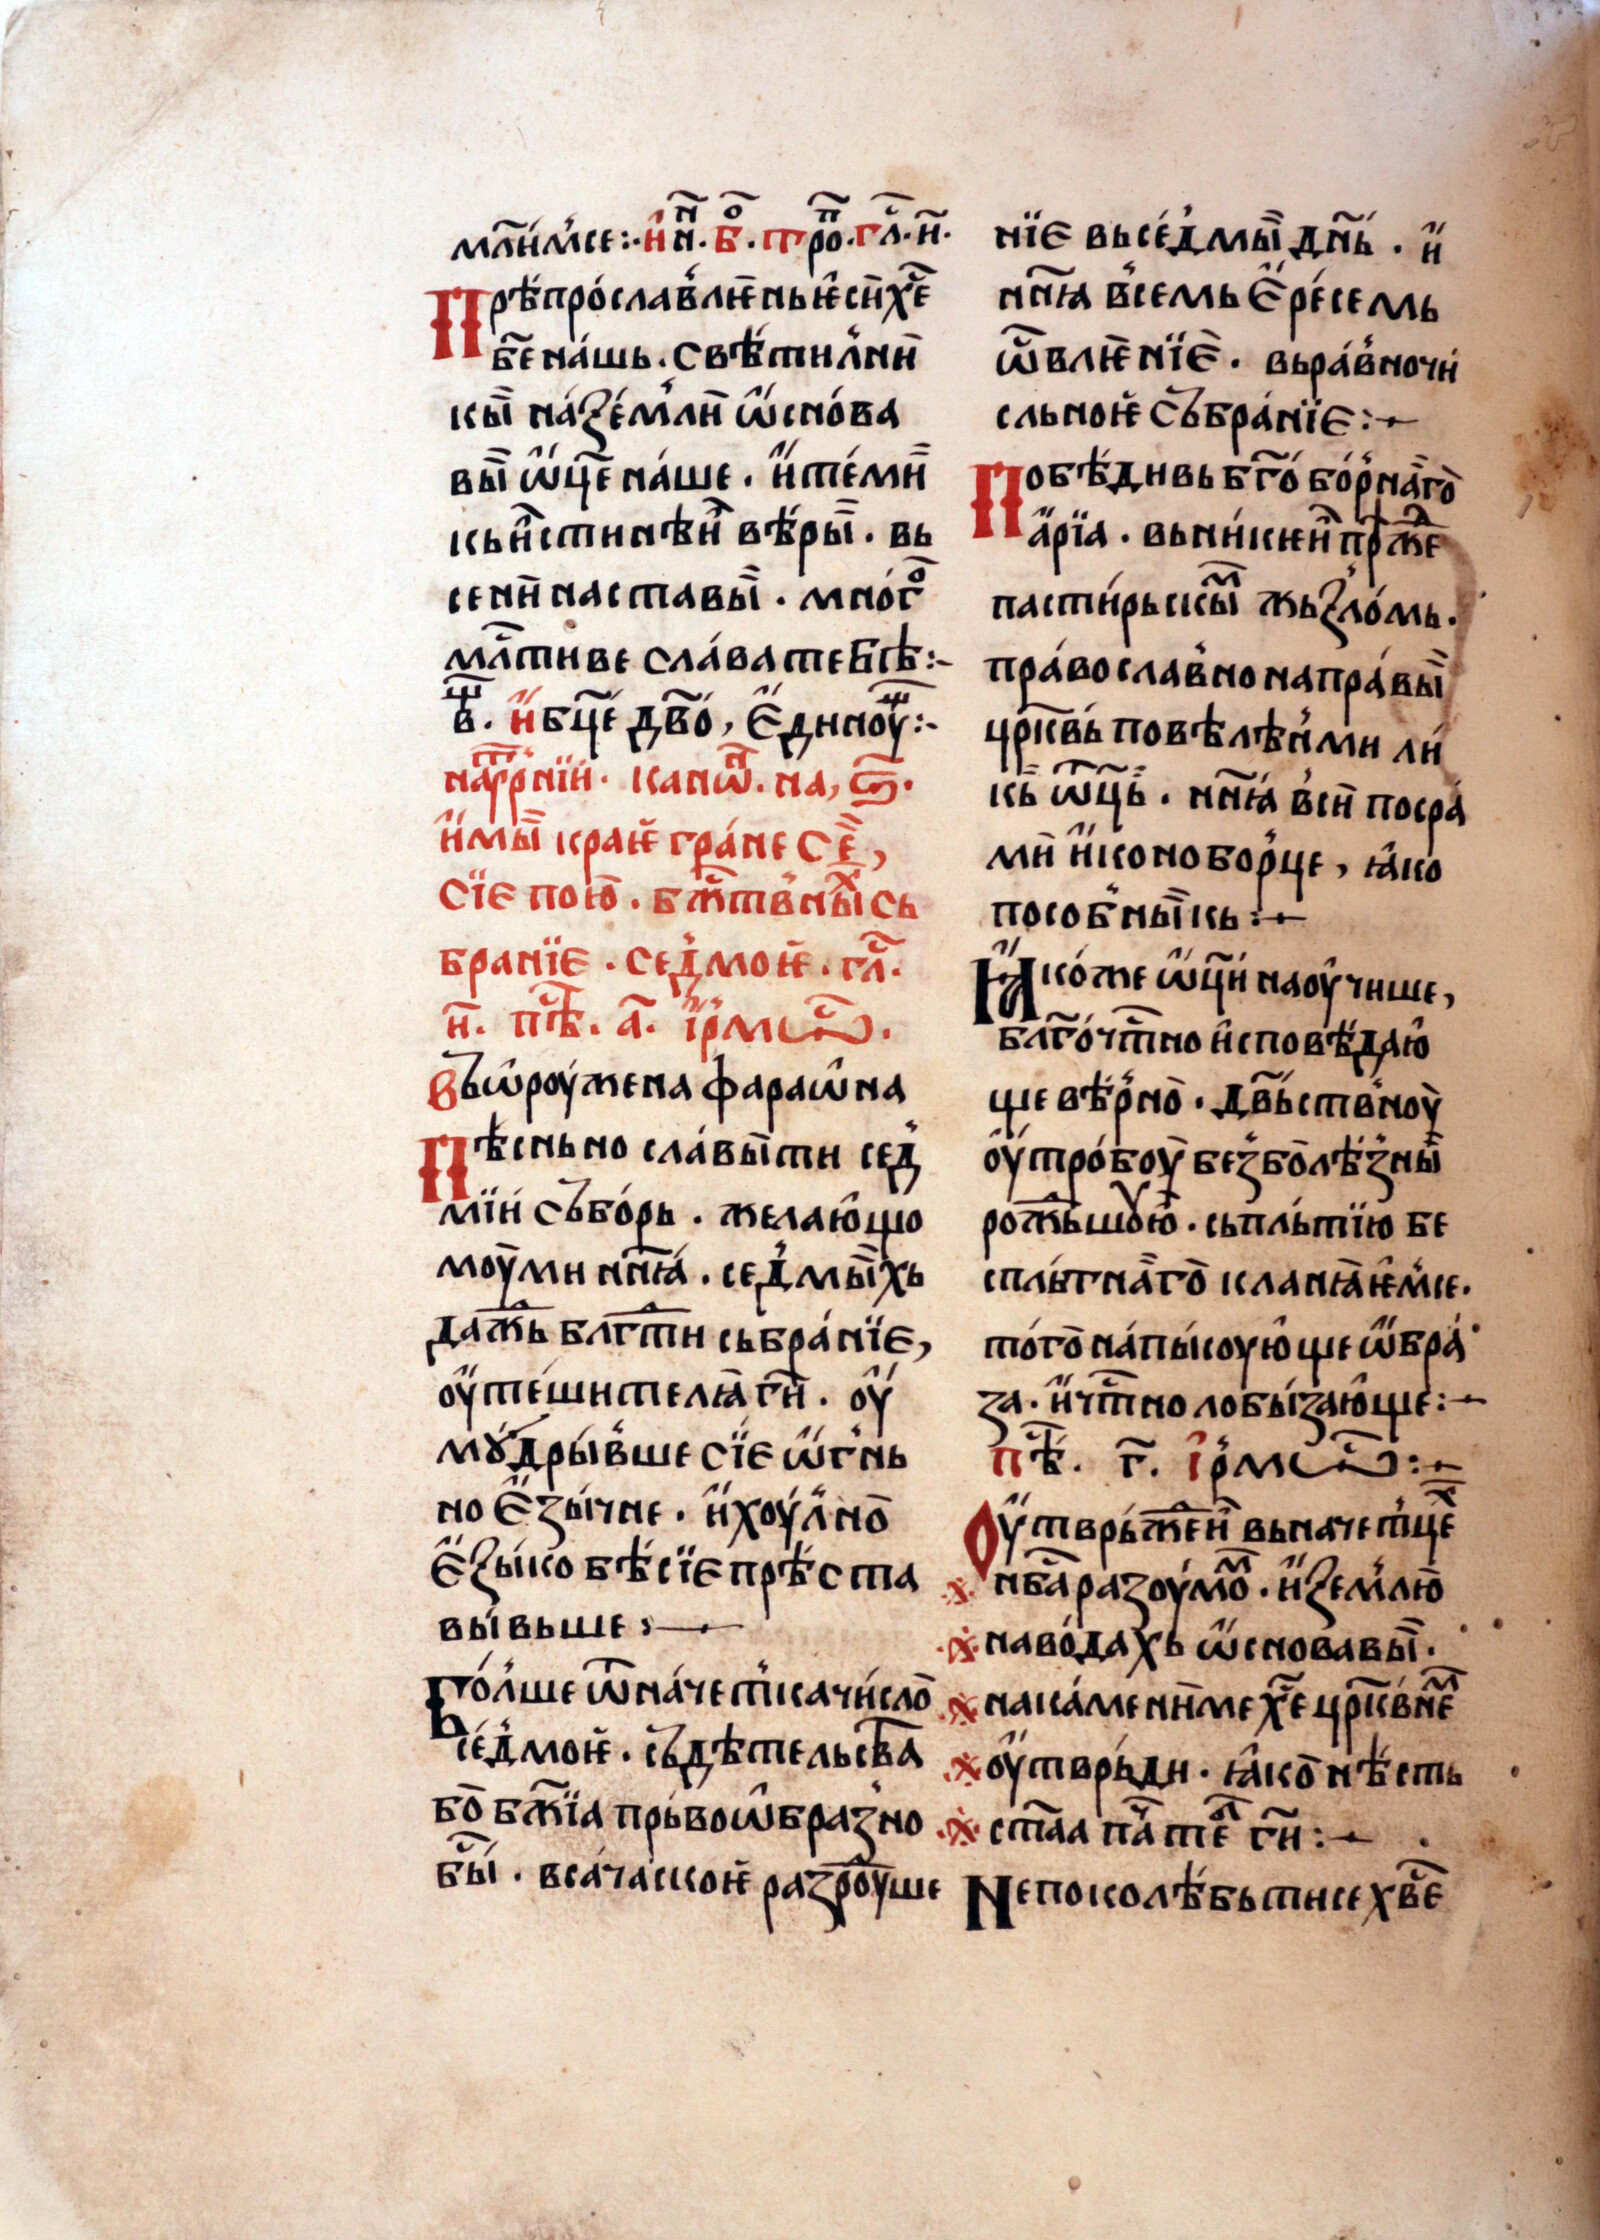 млн҃и́мсе:· и҆ н҃н. б҃о. тро҃п. гл҃. и҃.
Прѣпро́славле҆нь ѥ҆си҆ х҃е
б҃е на́шь. свѣти́лни
кы̏ на́ земли҆ ѡ҆снова
вы̏ ѡ҆ц҃е на́ше. и҆ те́ми
кь и҆стинѣи҆ вѣ́ры̏. вь
се ни҆ наставы̏. мно́го
мл҃тиве сла́ва тебѣ:~
в҃. и҆ б҃це дв҃о, є҆диноу҆:~
на оу҆тр҃нїи. канѡ҃н. на, ѕ҃.
и҆мы̏ краѥ гра́не се҃,
сїе пою̀. бж҃твны̏х сь
бранїе. седмоѥ. гл҃.
и҃. пѣ҃с. а҃. і҆рмⷭ҇ѡ.
въѡроу́жена фараѡна
Пѣснь но сла́вы̏ти сед
мїи́ събо́рь. желаю҆що
моу̀ ми нн҃ꙗ́. седмы̏хь
дажь бл҃гти сьбра́нїе,
оу҆те́шителꙗ г҃и. оу҆
мꙋ́дры́вше сїе ѡ҆гнь
но є҆зы́чне. и҆ хоу́лно̀
є҆зы́ко бѣсїе прѣста
вы́вьше:—
Бо́лше ѿна́четка чи́сло̀
се́дмоѥ. съдѣтельства
бо̀ бж҃їа прьвоѡ҆бразно
бы̏. вса́часкоѥ разроу҆ше
нїе вь се́дмы̏ дн҃ь. и҆
нн҃ꙗ всемь є҆ре́семь
ѿвле҆нїе. вьра́вночи
сльноѥ събра́нїе:~
Побѣдивь б҃го́ бо́рна̀го̀
а҆́рїа. вь ни́кѥи҆ пр҃жⷣе
пасти́рьскы̏м жьзло́мь.
пра́вославно напра́вы̏
цр҃квь повѣлѣнми ли́
кь ѿц҃ь. нн҃ꙗ вси҆ посра́
ми и҆́коноборце, ꙗ҆ко
посо́бны̏кь:~
Ꙗ҆ко́же ѡ҆ц҃и наоу҆чише,
бл҃го́чтно и҆сповѣ́даю҆
ще вѣ́рно̀. двь҃ствноу̀
оу҆тро́боу̀ без болѣ́зны̏
рожⷣьшꙋю. сь пль́тїю бе
спльтна̀го̀ кланꙗѥ҆мсе.
то́го̀ на́пы́соую҆ще ѡ҆бра́
за. и҆ чт҃но лобы́заю҆ще:~
пѣ҃с. г҃. і҆рмⷭ҇ѡ:~
Оу҆тврьжⷣе́и҆ вь наче тце҆х
нб҃а разоу́мо̀м. и҆ землю̀
на во́дахь ѡ҆снова́вы̏.
на ка́мени ме х҃е цр҃квнѣм
оу҆твръ́ди. ꙗ҆ко̀ нѣсть
ст҃аа па҃ч те҃ г҃и:~
Не поколѣбьтисе х҃ве